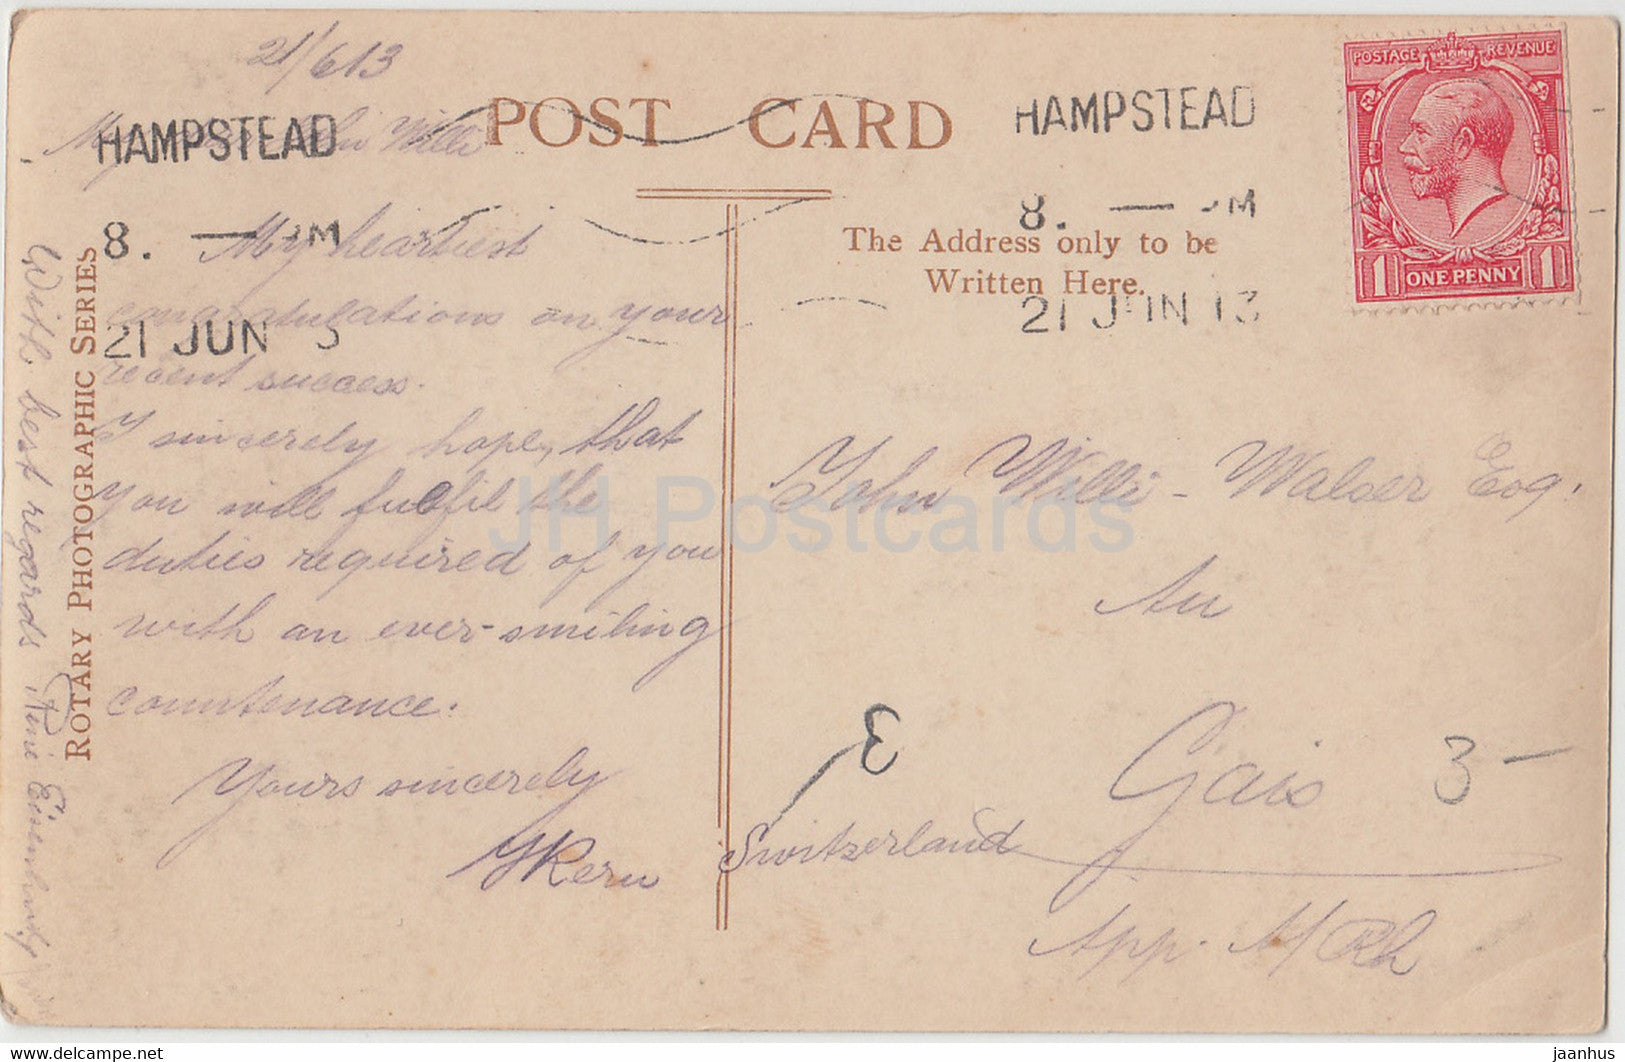 21/6 13
POST CARD
HAMPSTEAD
HAMPSTEAD
My John Willi
8. — PM
8. — PM
21 JUN 3
21 JUN 13
My heartiest
congratulations on your
recent success.
I sincerely hope, that
you will fulfil the
duties required of you
with an ever-smiling
countenance.
Yours sincerely
Kern
With best regards
ROTARY PHOTOGRAPHIC SERIES
The Address only to be
Written Here.
POSTAGE REVENUE
1 ONE PENNY 1
John Willi-Walser Esq.
Au
Gais
3 —
E
Switzerland
App. A/Rh
JH Postcards
jaanhus
delcampe.net